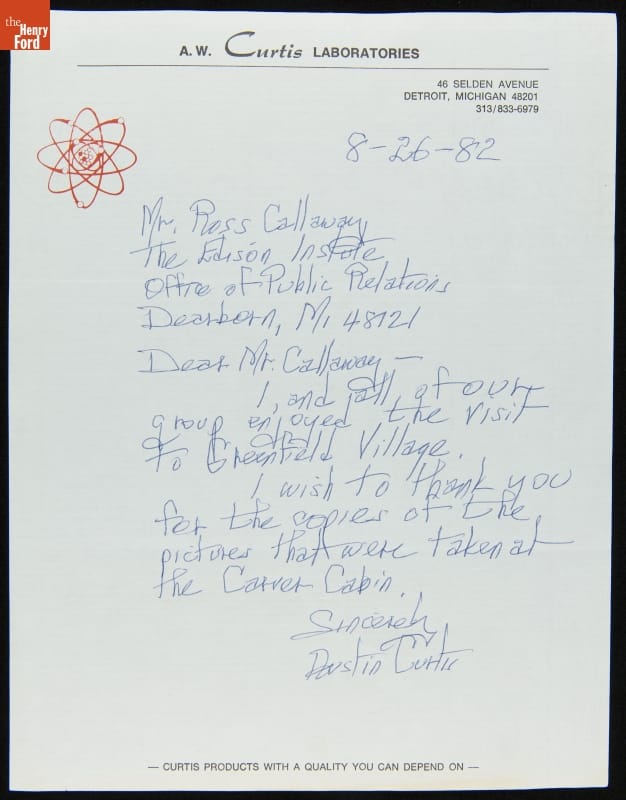 the
Henry
Ford
A. W. Curtis LABORATORIES
46 SELDEN AVENUE
DETROIT, MICHIGAN 48201
313/833-6979
8-26-82
Mr. Ross Callaway
The Edison Instute
Office of Public Relations
Dearborn, Mi 48121
Dear Mr. Callaway —
I, and all of our
group enjoyed the visit
to Greenfield Village.
I wish to thank you
for the copies of the
pictures that were taken at
the Carver Cabin.
Sincerely
Austin Curtis
— CURTIS PRODUCTS WITH A QUALITY YOU CAN DEPEND ON —